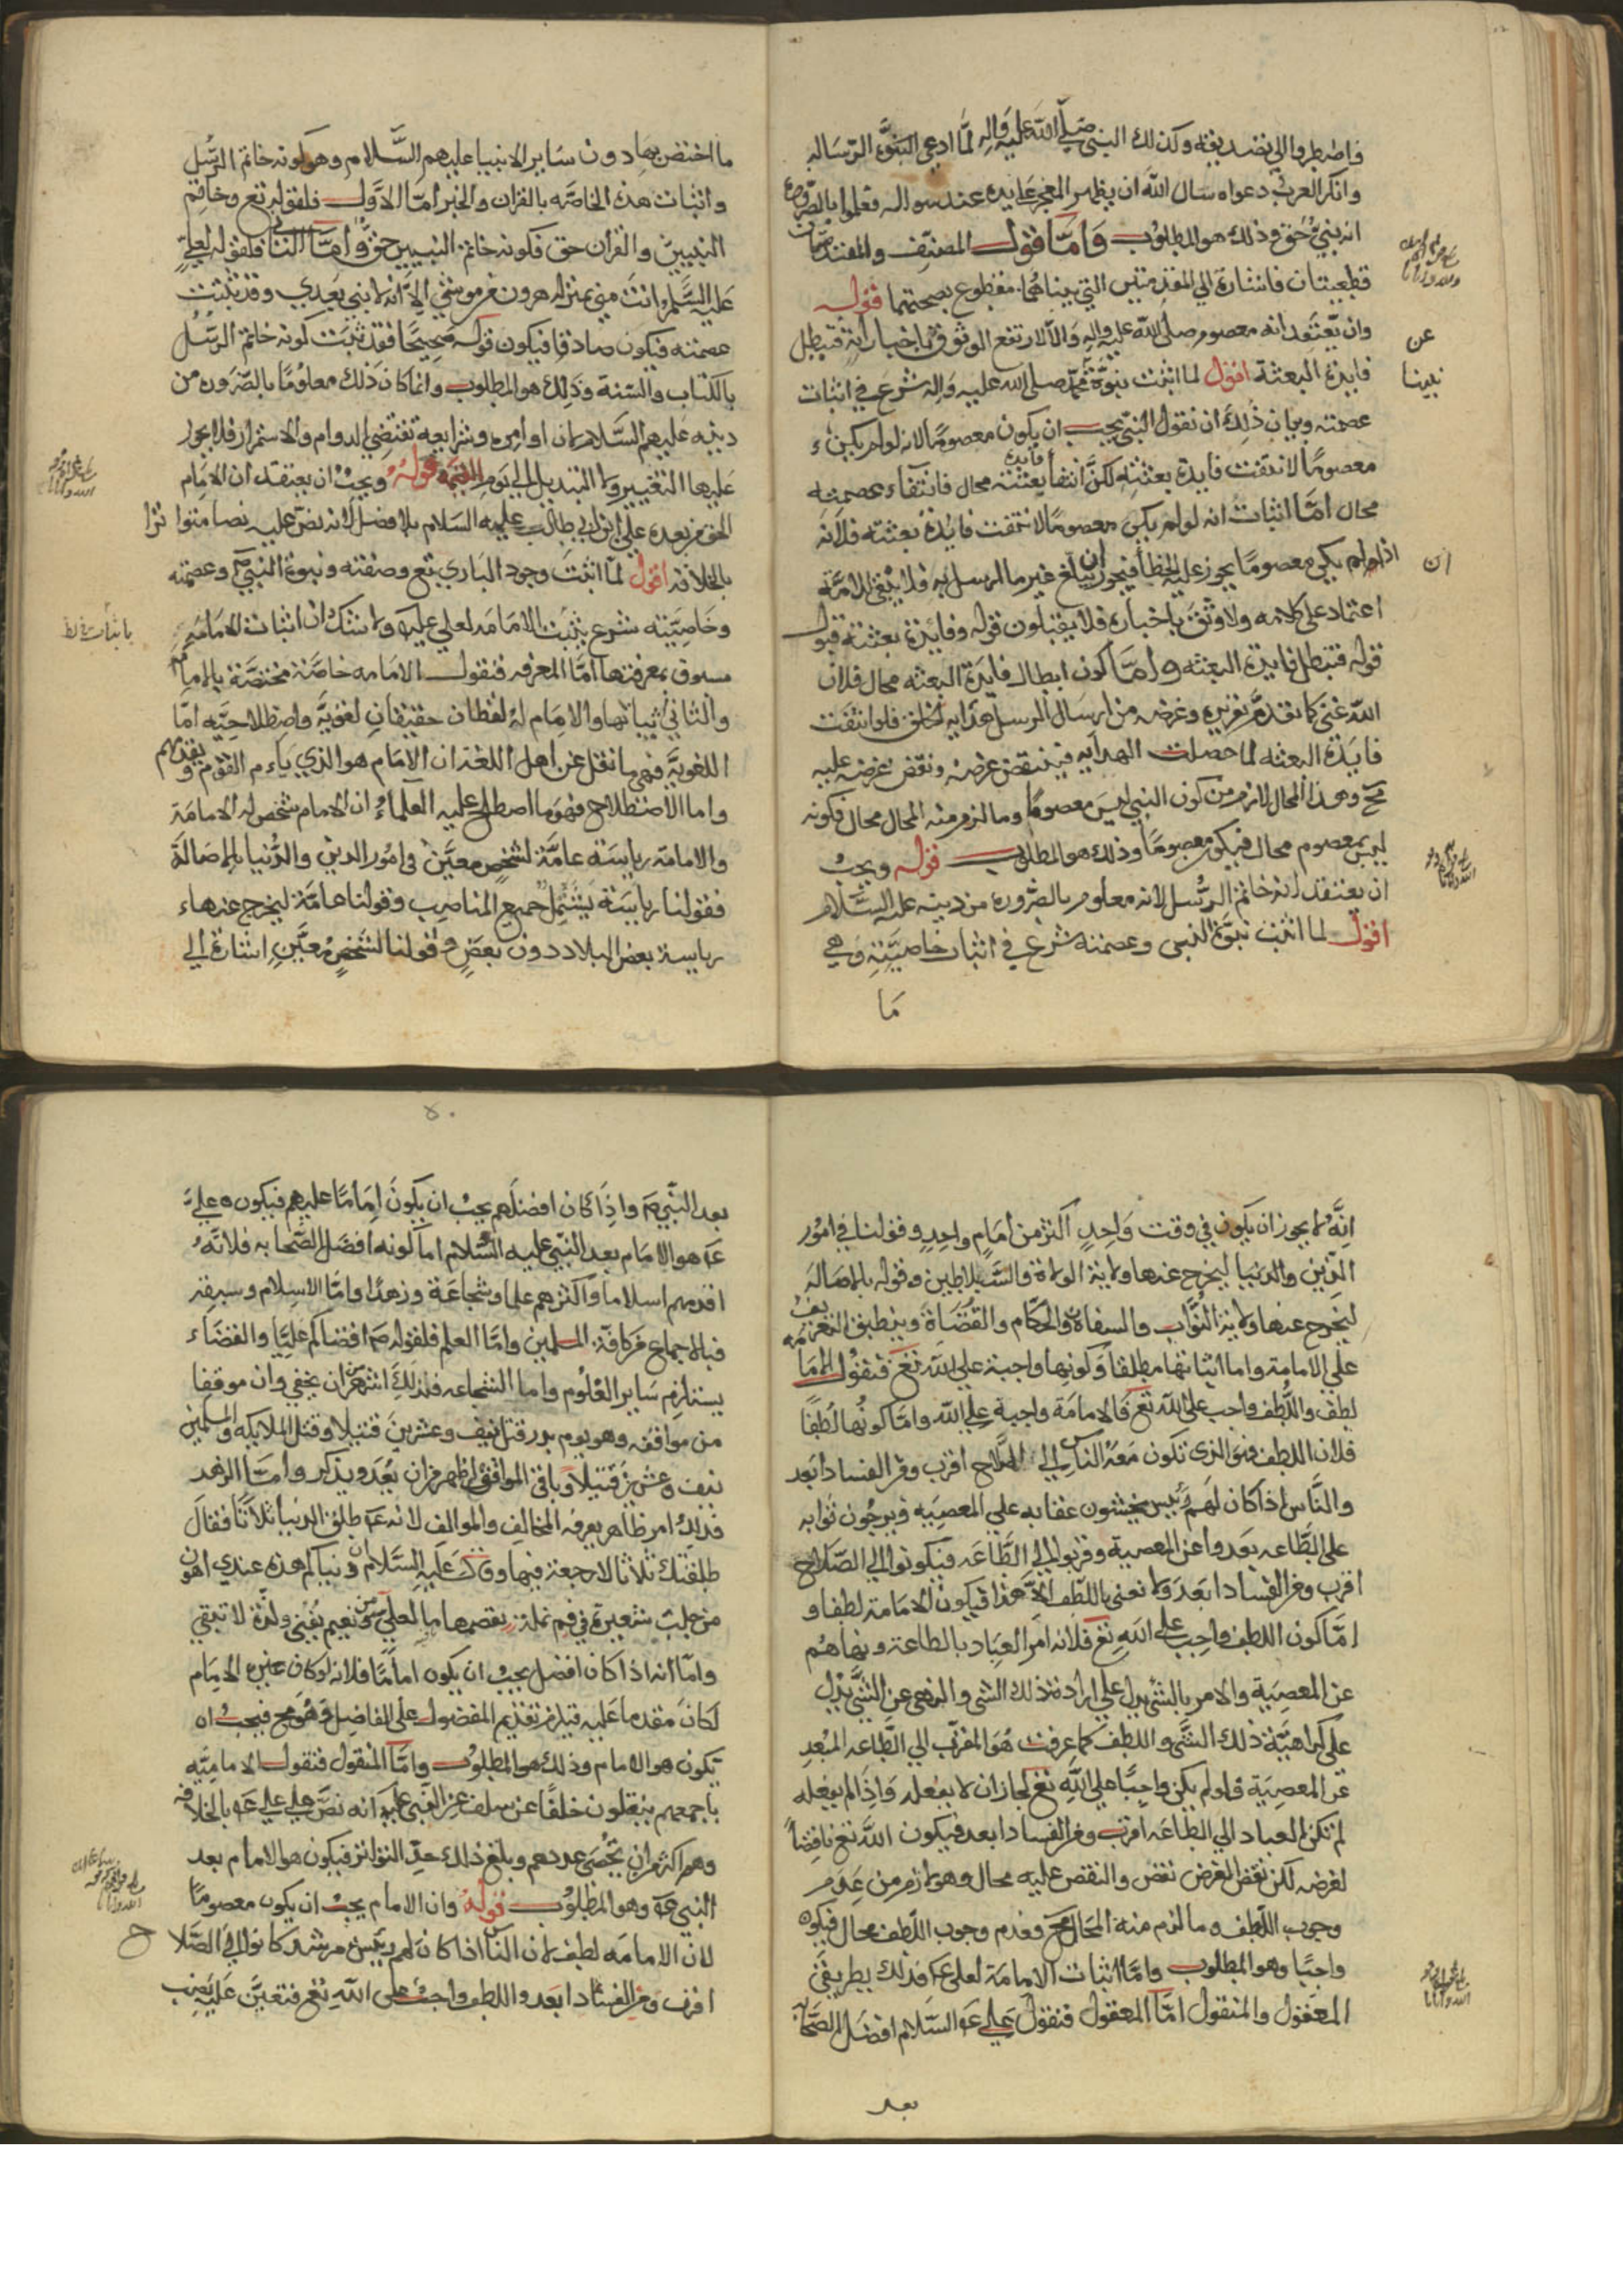 فاضطروا الي تصديقه وكذلك النبي صلي الله عليه واله لما ادعي النبوة الرسالة
وانكر العرب دعواه سال الله ان يظهر المعجز علي يده عند سواله فعلموا بالضرورة
انه نبي حق وذلك هو المطلوب واما قول المصنف والمقدمتان
قطعيتان فاشارة الي المقدمتين التي بيناهما مقطوع بصحتهما قوله
وان يعتقد انه معصوم صلي الله عليه واله والا لارتفع الوثوق باخباراته فتبطل
عن
فايدة البعثة اقول لما اثبت نبوة محمد صلي الله عليه واله شرع في اثبات
نبينا
عصمته وبيان ذلك ان نقول النبي يجب ان يكون معصوما لانه لو لم يكن
معصوما لانتفت فايدة بعثته لكن انتفا فايدة بعثته محال فانتفاء عصمته
محال اما اثبات انه لو لم يكن معصوما لانتفت فايدة بعثته فلانه
اذا لم يكن معصوما يجوز عليه الخطا فيجوز ان يبلغ غير ما ارسل به فلا يبقي للامة
ان
اعتماد علي كلامه ولا وثق باخباره فلا يقبلون قوله وفايدة بعثته قبول
قوله فتبطل فايدة البعثه واما كون ابطال فايدة البعثه محال فلان
الله غني كما تقدم تقريره وغرضه من ارسال الرسل هدايه الخلق فلو انتفت
فايدة البعثه لما حصلت الهدايه فينتقض غرضه ونقض غرضه عليه
مح وهذا المحال لازم من كون النبي ليس معصوما وما لزم منه المحال محال فكونه
ليس بمعصوم محال فيكون معصوما وذلك هو المطلوب قوله ويجب
ان يعتقد انه خاتم الرسل لانه معلوم بالضروره من دينه عليه السلام
اقول لما اثبت نبوة النبي وعصمته شرع في اثبات خاصيته وهي
ما
ما اختص بها دون ساير الانبيا عليهم السلام وهو كونه خاتم الرسل
واثبات هذه الخاصه بالقران والخبر اما الاول فلقوله تع وخاتم
النبيين والقران حق فكونه خاتم النبيين حق واما الثاني فلقوله لعلي
عليه السلم انت مني بمنزله هرون من موسي الا انه لا نبي بعدي وقد ثبتت
عصمته فيكون صادقا فيكون قوله صحيحا فقد ثبت كونه خاتم الرسل
بالكتاب والسنة وذلك هو المطلوب وانما كان ذلك معلوما بالضروره من
دينه عليهم السلام لان اوامره وشرايعه تقتضي الدوام والاستمرار فلا يجوز
عليها التغيير ولا التبديل الي يوم القيمة قوله ويجب ان يعتقد ان الامام
الحق من بعده علي ابن ابي طالب عليه السلام بلا فصل لانه نص عليه نصا متواترا
بالخلافة اقول لما اثبت وجود الباري تع وصفته ونبوة النبي وعصمته
وخاصيته شرع يثبت الامامه لعلي عليه ولا شك ان اثبات الامامة
مسبوق بمعرفتها اما المعرفه فنقول الامامه خاصة مختصة بالامام
والثاني اثباتها والامام له لفظان حقيقتان لغوية واصطلاحيه اما
اللغوية فهي ما نقل عن اهل اللغة ان الامام هو الذي ياءم القوم ويقدمهم
واما الاصطلاح فهو ما اصطلح عليه العلماء ان الامام شخص له الامامة
والامامة رياسة عامة لشخص معين في امور الدين والدنيا بالاصالة
فقولنا رياسة يشتمل جميع المناصب وقولنا عامة ليخرج عنهاء
رياسة بعض البلاد دون بعض وقولنا لشخص معين اشارة الي
انه لا يجوز ان يكون في وقت واحد اكثر من امام واحد وقولنا في امور
الدين والدنيا ليخرج عنها ولاية الولاة والسلاطين وقوله بالاصاله
ليخرج عنها ولاية النواب والسفاة والحكام والقضاة وينطبق التعريف
علي الامامة واما اثباتها مطلقا وكونها واجبة علي الله تع فنقول الامامة
لطف واللطف واجب علي الله تع فالامامة واجبة علي الله واما كونها لطفا
فلان اللطف هو الذي تكون معه الناس الي الصلاح اقرب ومن الفساد ابعد
والناس اذا كان لهم رئيس يخشون عقابه علي المعصيه ويرجون ثوابه
علي الطاعه بعدوا عن المعصية وقربوا الي الطاعه فيكونوا الي الصلاح
اقرب ومن الفساد ابعد ولا نعني باللطف الا هذا فيكون الامامة لطفا و
اما كون اللطف واجب علي الله تع فلانه امر العباد بالطاعة ونهاهم
عن المعصية والامر بالشي يدل علي ارادة ذلك الشي والنهي عن الشي يدل
علي كراهية ذلك الشي واللطف كما عرفت هو المقرب الي الطاعه المبعد
عن المعصية فلو لم يكن واجبا علي الله تع لجاز ان لا يفعله واذا لم يفعله
لم تكن العباد الي الطاعه اقرب ومن الفساد ابعد فيكون الله تع ناقضا
لغرضه لكن نقض الغرض نقض والنقض عليه محال وهو لازم من عدم
وجوب اللطف وما لزم منه المحال مح فعدم وجوب اللطف محال فيكون
واجبا وهو المطلوب واما اثبات الامامة لعلي ع فذلك بطريقي
المعقول والمنقول اما المعقول فنقول علي ع السلام افضل الصحابه
بعد
٥٠
بعد النبي ص واذا كان افضلهم يجب ان يكون اماما عليهم فيكون علي
ع هو الامام بعد النبي عليه السلام اما كونه افضل الصحابه فلانه
اقدمهم اسلاما واكثرهم علما وشجاعة وزهدا واما الاسلام وسبقه
فبالاجماع من كافة المسلمين واما العلم فلقوله ص اقضاكم علي والقضاء
يستلزم ساير العلوم واما الشجاعه فذلك اشهر من ان يخفي وان موقفا
من مواقفه وهو يوم بدر قتل نيف وعشرين قتيلا وقتل الملايكه والمسلمين
نيف وعشرين قتيلا وباقي المواقف اظهر من ان يعد ويذكر واما الزهد
فذلك امر ظاهر يعرفه المخالف والموالف لانه ع طلق الدنيا ثلاثا فقال
طلقتك ثلاثا لا رجعة فيها وقال عليه السلام ان دنياكم هذه عندي اهون
من جلب شعيرة في فم نملة تقضمها ما لعلي ونعيم يفني ولذة لا تبقي
واما انه اذا كان افضل يجب ان يكون اماما فلانه لو كان غيره الامام
لكان مقدما عليه فيلزم تقديم المفضول علي الفاضل وهو مح فيجب ان
يكون هو الامام وذلك هو المطلوب واما المنقول فنقول الاماميه
باجمعهم ينقلون خلفا عن سلف عن النبي عليه انه نص علي علي ع بالخلافه
وهم اكثر من ان تحصي عددهم وبلغ ذلك حد التواتر فيكون هو الامام بعد
النبي ع وهو المطلوب قوله وان الامام يجب ان يكون معصوما
لان الامامه لطف لان الناس اذا كان لهم رئيس مرشد كانوا الي الصلاح
اقرب ومن الفساد ابعد واللطف واجب علي الله تع فتعين عليه نصب